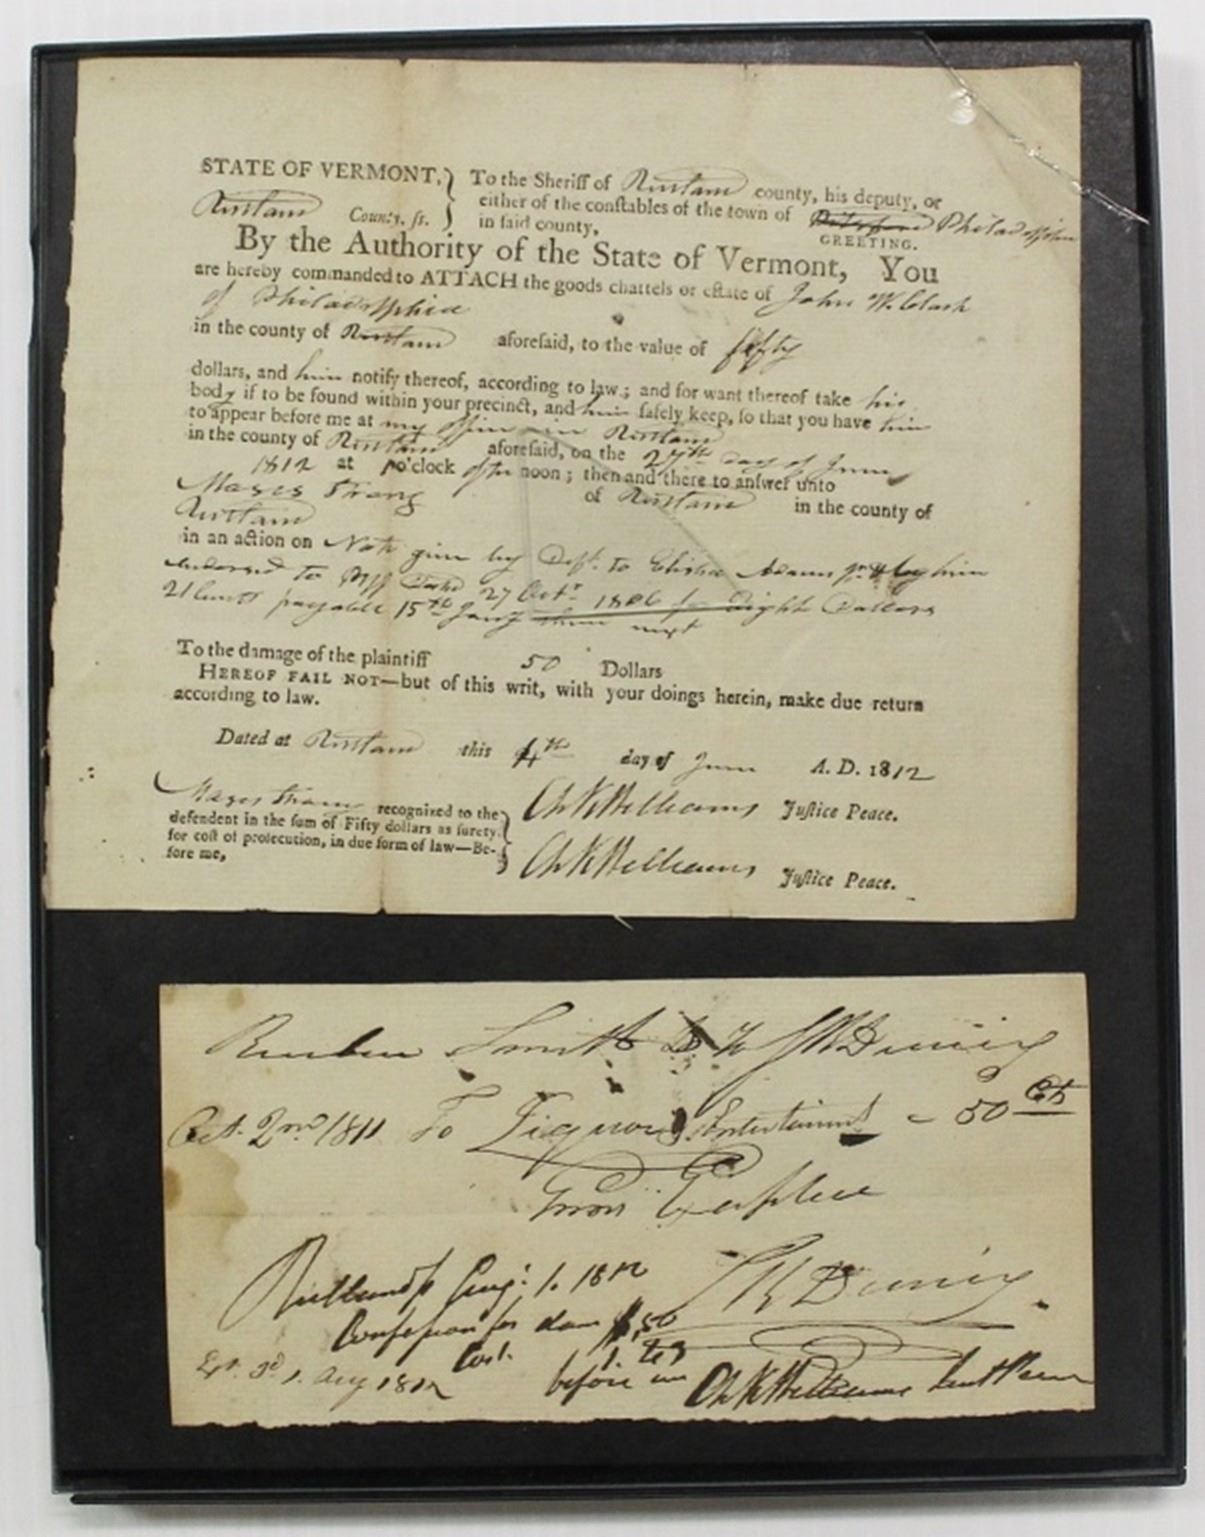 STATE OF VERMONT,
Rutland County, ſs.
To the Sheriff of Rutland county, his deputy, or
either of the conſtables of the town of Pittsford Philadelphia
in ſaid county,
GREETING.
By the Authority of the State of Vermont, You
are hereby commanded to ATTACH the goods chattels or eſtate of John W. Clark
of Philadelphia
in the county of Rutland aforeſaid, to the value of fifty
dollars, and him notify thereof, according to law; and for want thereof take his
body if to be found within your precinct, and him ſafely keep, ſo that you have him
to appear before me at my office in Rutland
in the county of Rutland aforeſaid, on the 27th day of June
1812 at 1 o'clock after noon; then and there to anſwer unto
Moses Strong of Rutland in the county of
Rutland
in an action on Note given by Deft. to Elisha Adams & by him
endorsed to Plff Dated 27 Octr. 1806 for Eight Dollars
21 Cents payable 15th Jany then next
To the damage of the plaintiff 50 Dollars
HEREOF FAIL NOT—but of this writ, with your doings herein, make due return
according to law.
Dated at Rutland this 4th day of June A. D. 1812
Moses Strong recognized to the
defendent in the ſum of Fifty dollars as ſurety
for coſt of proſecution, in due form of law—Be-
fore me,
Ch K Williams Juſtice Peace.
Ch K Williams Juſtice Peace.
Reuben Smith Dr to
Oct. 2nd 1811 To Liquor & Entertainment - 50 Cts
Errors Excepted
Rutland ss Augt. 1. 1812
Confession for dam $,50
Cost.
Ex. 1. Aug 1812
before me Ch K Williams Just Peace